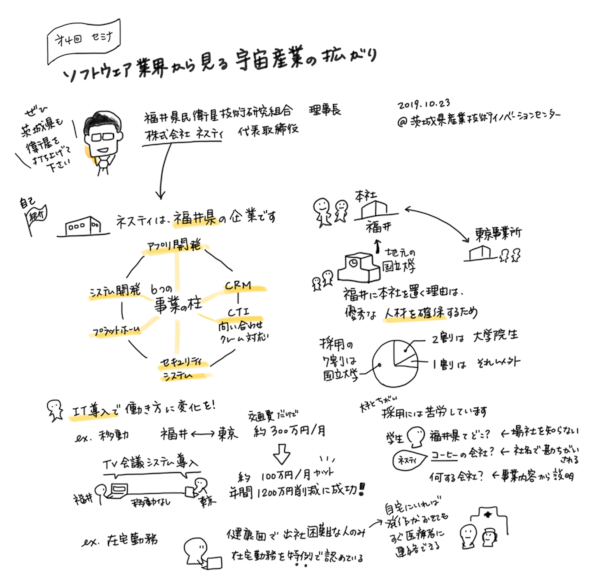 第4回 セミナ
ソフトウェア業界から見る宇宙産業の拡がり
ぜひ
茨城県も
衛星を
打ち上げて
下さい
福井県民衛星技術研究組合 理事長
株式会社 ネスティ 代表取締役
2019.10.23
@茨城県産業技術イノベーションセンター
自己
紹介
ネスティは、福井県の企業です
アプリ開発
システム開発
6つの
事業の柱
CRM
CTI
問い合わせ
クレーム対応
プラットホーム
セキュリティ
システム
本社
福井
東京事業所
地元の
国立大学
福井に本社を置く理由は、
優秀な人材を確保するため
採用の
7割は
国立大学
2割は 大学院生
1割は それ以外
IT導入で働き方に変化を!
ex. 移動 福井 ⟷ 東京
交通費だけで
約300万円/月
TV会議システム導入
福井
移動なし
東京
約100万円/月カット
年間1200万円削減に成功!!
ex. 在宅勤務
健康面で出社困難な人のみ
在宅勤務を特例で認めている
自宅にいれば
発作がおきても
すぐ医療者に
連絡できる
採用には苦労しています
学生
福井県てどこ? ← 場社を知らない
ネスティ
コーヒーの会社? ← 社名で勘ちがい
される
何する会社? ← 事業内容から説明